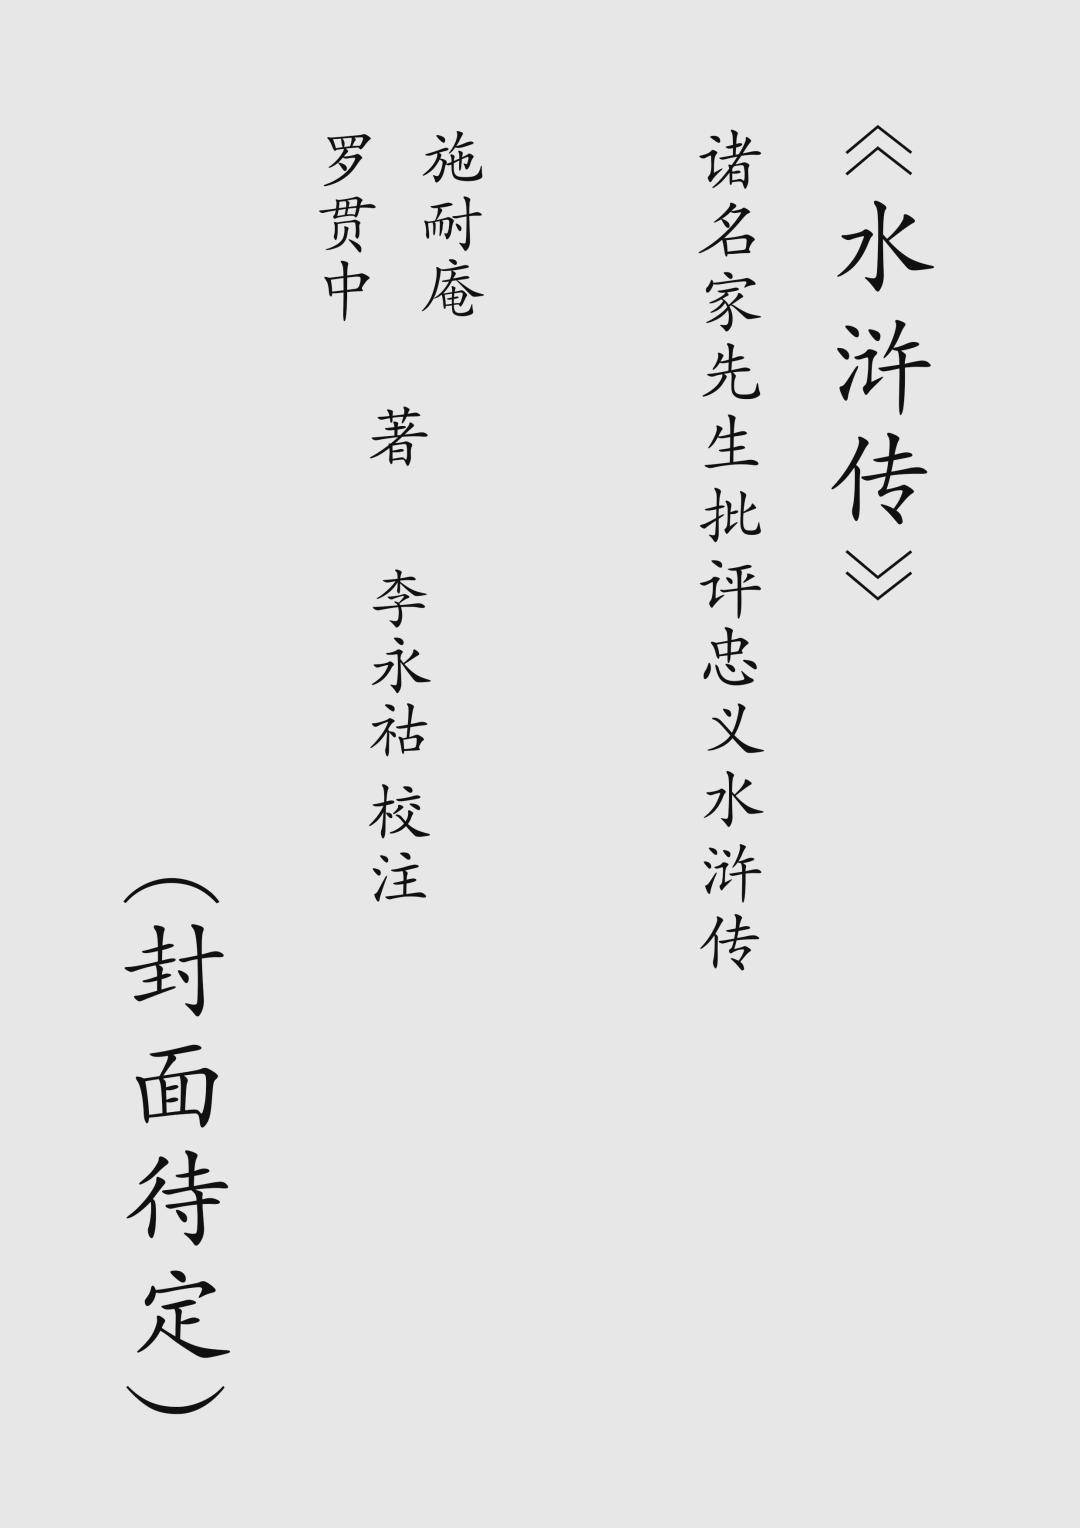 《水浒传》
诸名家先生批评忠义水浒传
施耐庵
罗贯中
著
李永祜 校注
（封面待定）